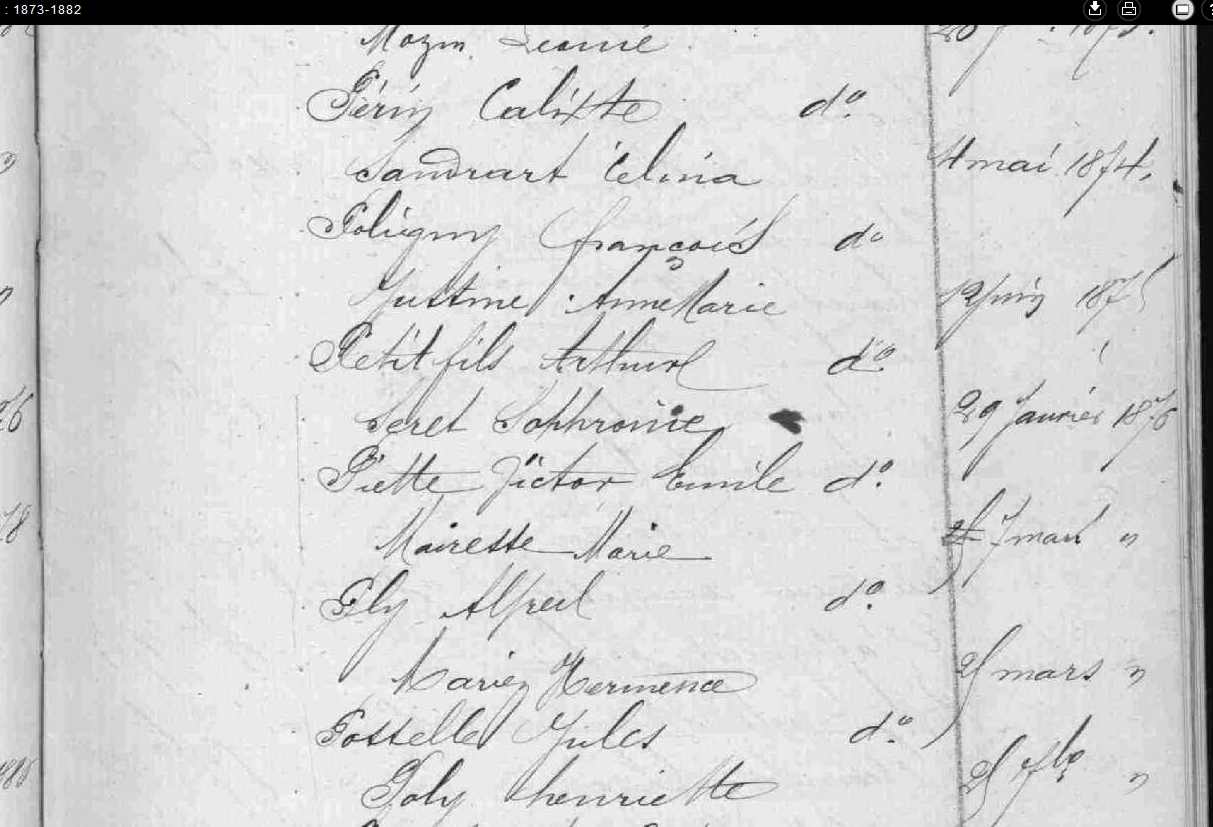 : 1873-1882
Mozin Léonie
Périn Calixte do
Sandrart Célina 4 mai 1874.
Poligny françois do
Justine Anne Marie 12 Juin 1875
Petit fils Arthur do
Seret Sophronie 29 Janvier 1876
Piette Victor Emile do
Mairesse Marie mars "
Ply Alfred do
Mariez Hermence mars "
Postelle Jules do
Poly henriette 7bre "